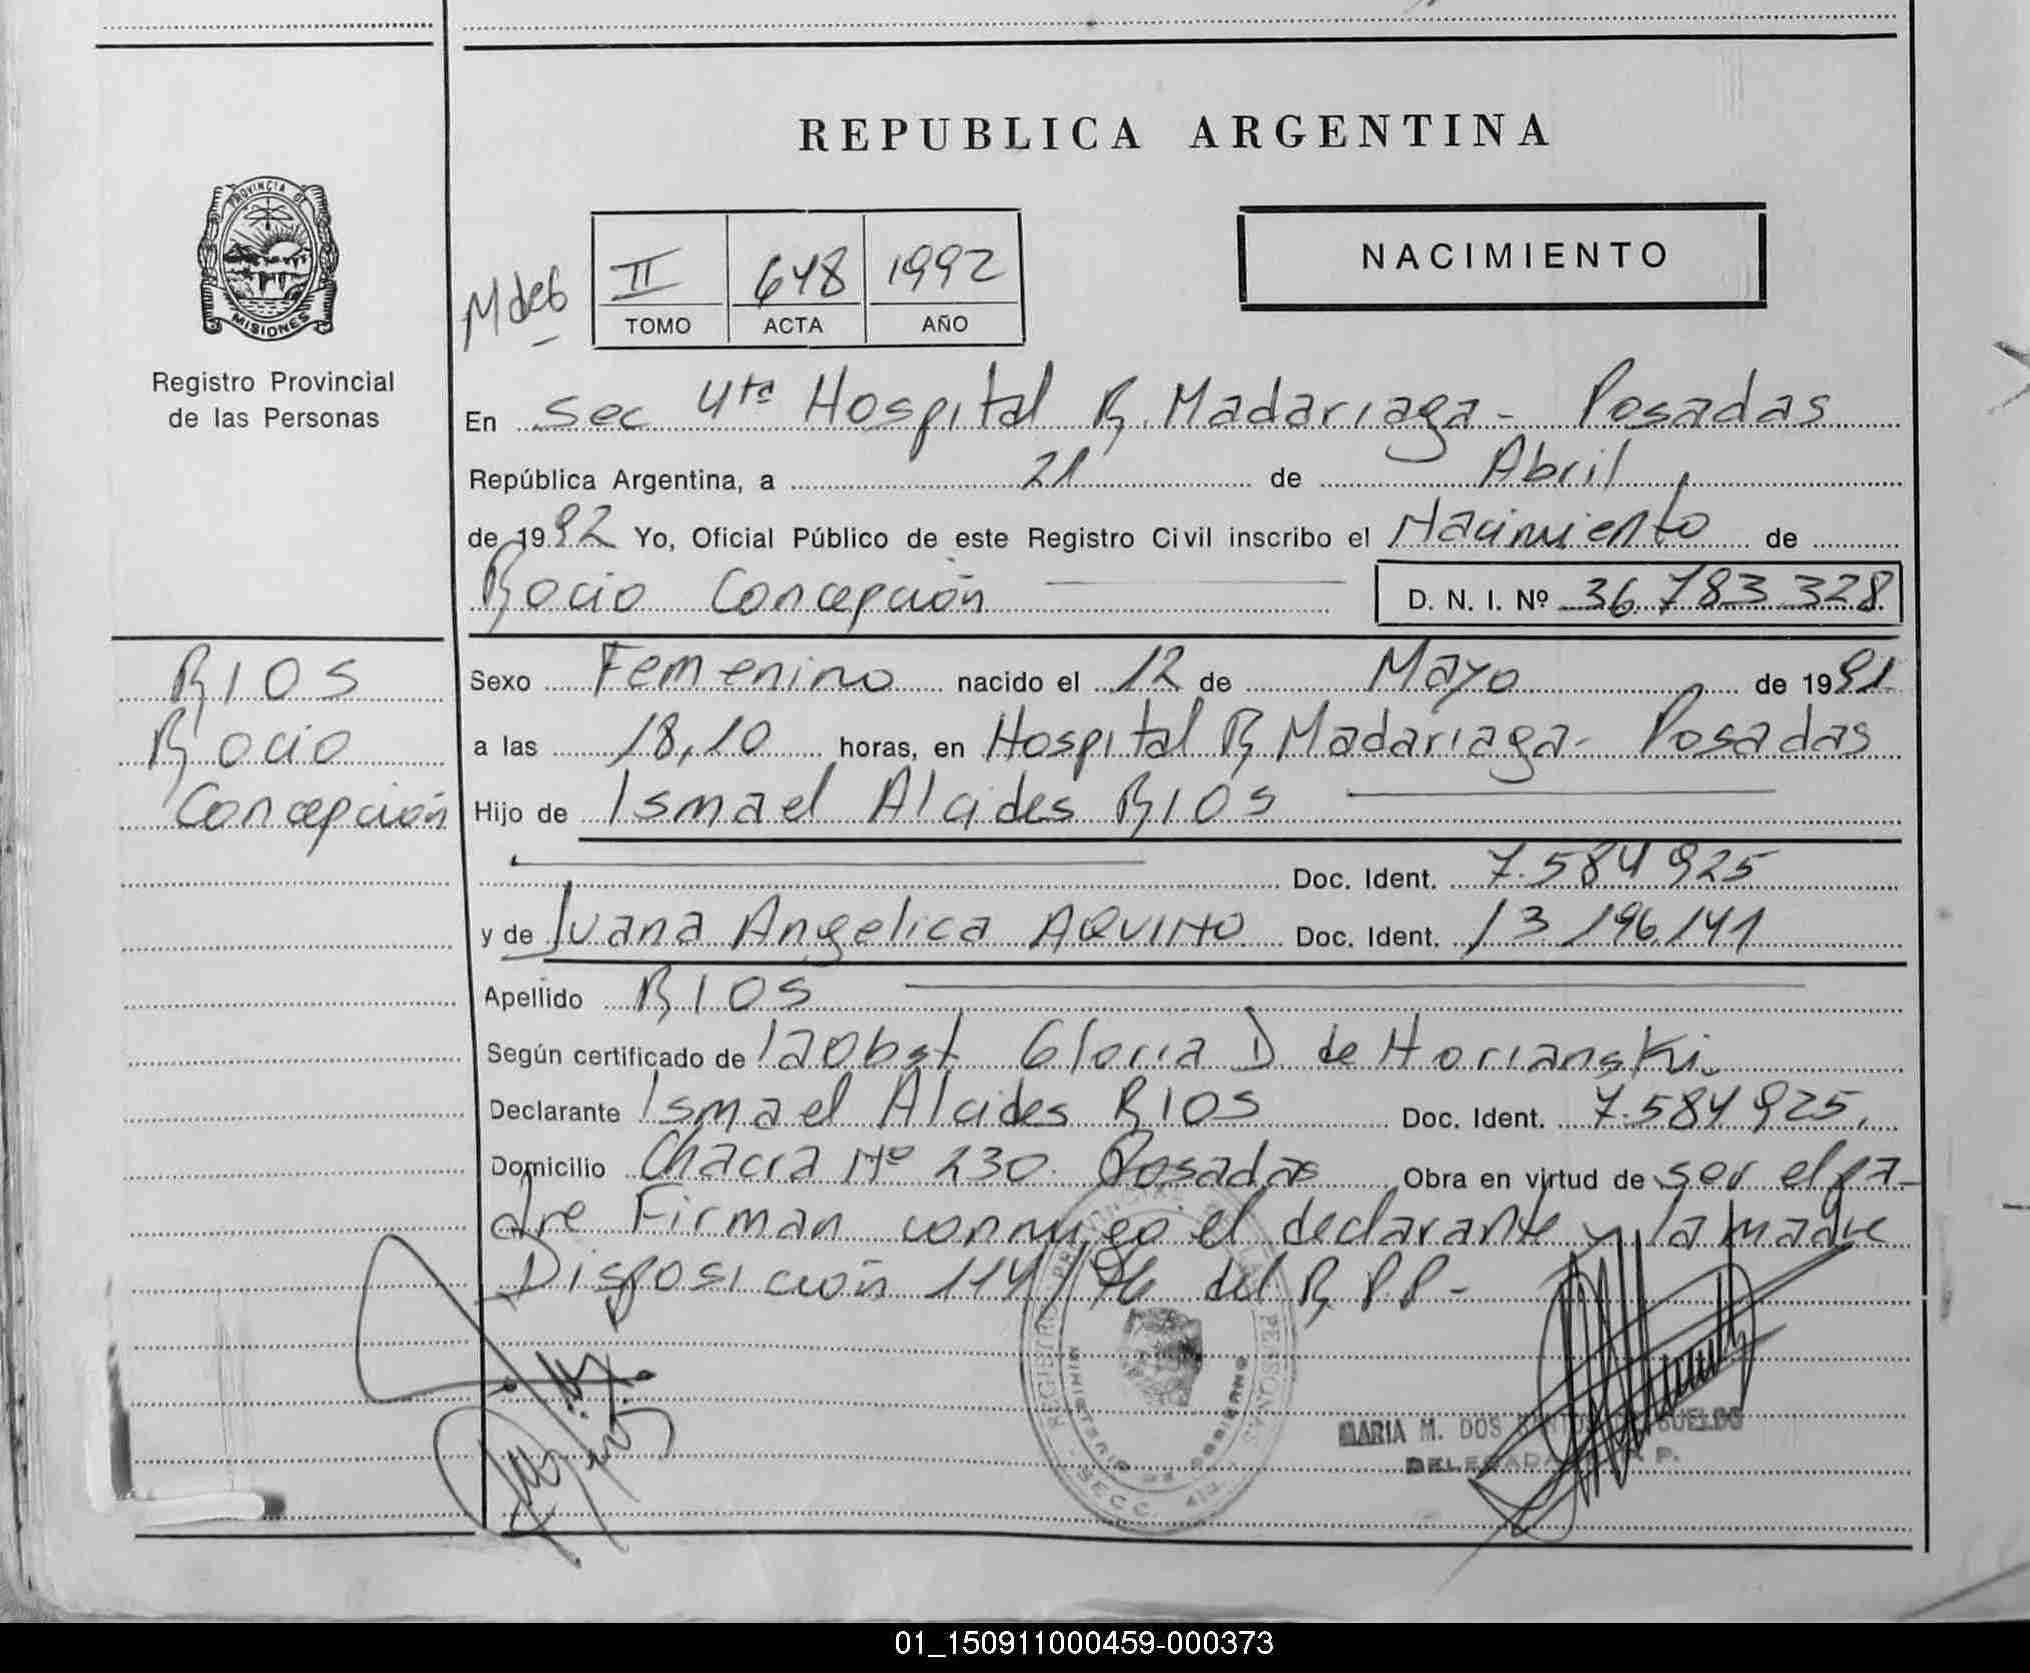 REPUBLICA ARGENTINA
PROVINCIA DE
MISIONES
Registro Provincial
de las Personas
M de 6
II 648 1992
TOMO ACTA AÑO
NACIMIENTO
En Sec 4ta Hospital R. Madariaga - Posadas
República Argentina, a 21 de Abril
de 1992 Yo, Oficial Público de este Registro Civil inscribo el Nacimiento de
Rocio Concepción D. N. I. Nº 36 783 328
RIOS
Rocio
Concepción
Sexo Femenino nacido el 12 de Mayo de 1991
a las 18,10 horas, en Hospital R. Madariaga - Posadas
Hijo de Ismael Alcides RIOS
Doc. Ident. 7.584 925
y de Juana Angelica AQUINO Doc. Ident. 13 196 141
Apellido RIOS
Según certificado de la Obst. Gloria D de Horianski.
Declarante Ismael Alcides RIOS Doc. Ident. 7.584 925.
Domicilio Chacra Nº 230. Posadas Obra en virtud de ser el pa-
dre Firman conmigo el declarante y la madre
Disposición 114/76 del R P P -
REGISTRO PROVINCIAL DE LAS PERSONAS
MINISTERIO DE GOBIERNO
SECC. 4ta
MARIA M. DOS SUELDO
DELEGADA R. P.
01_150911000459-000373